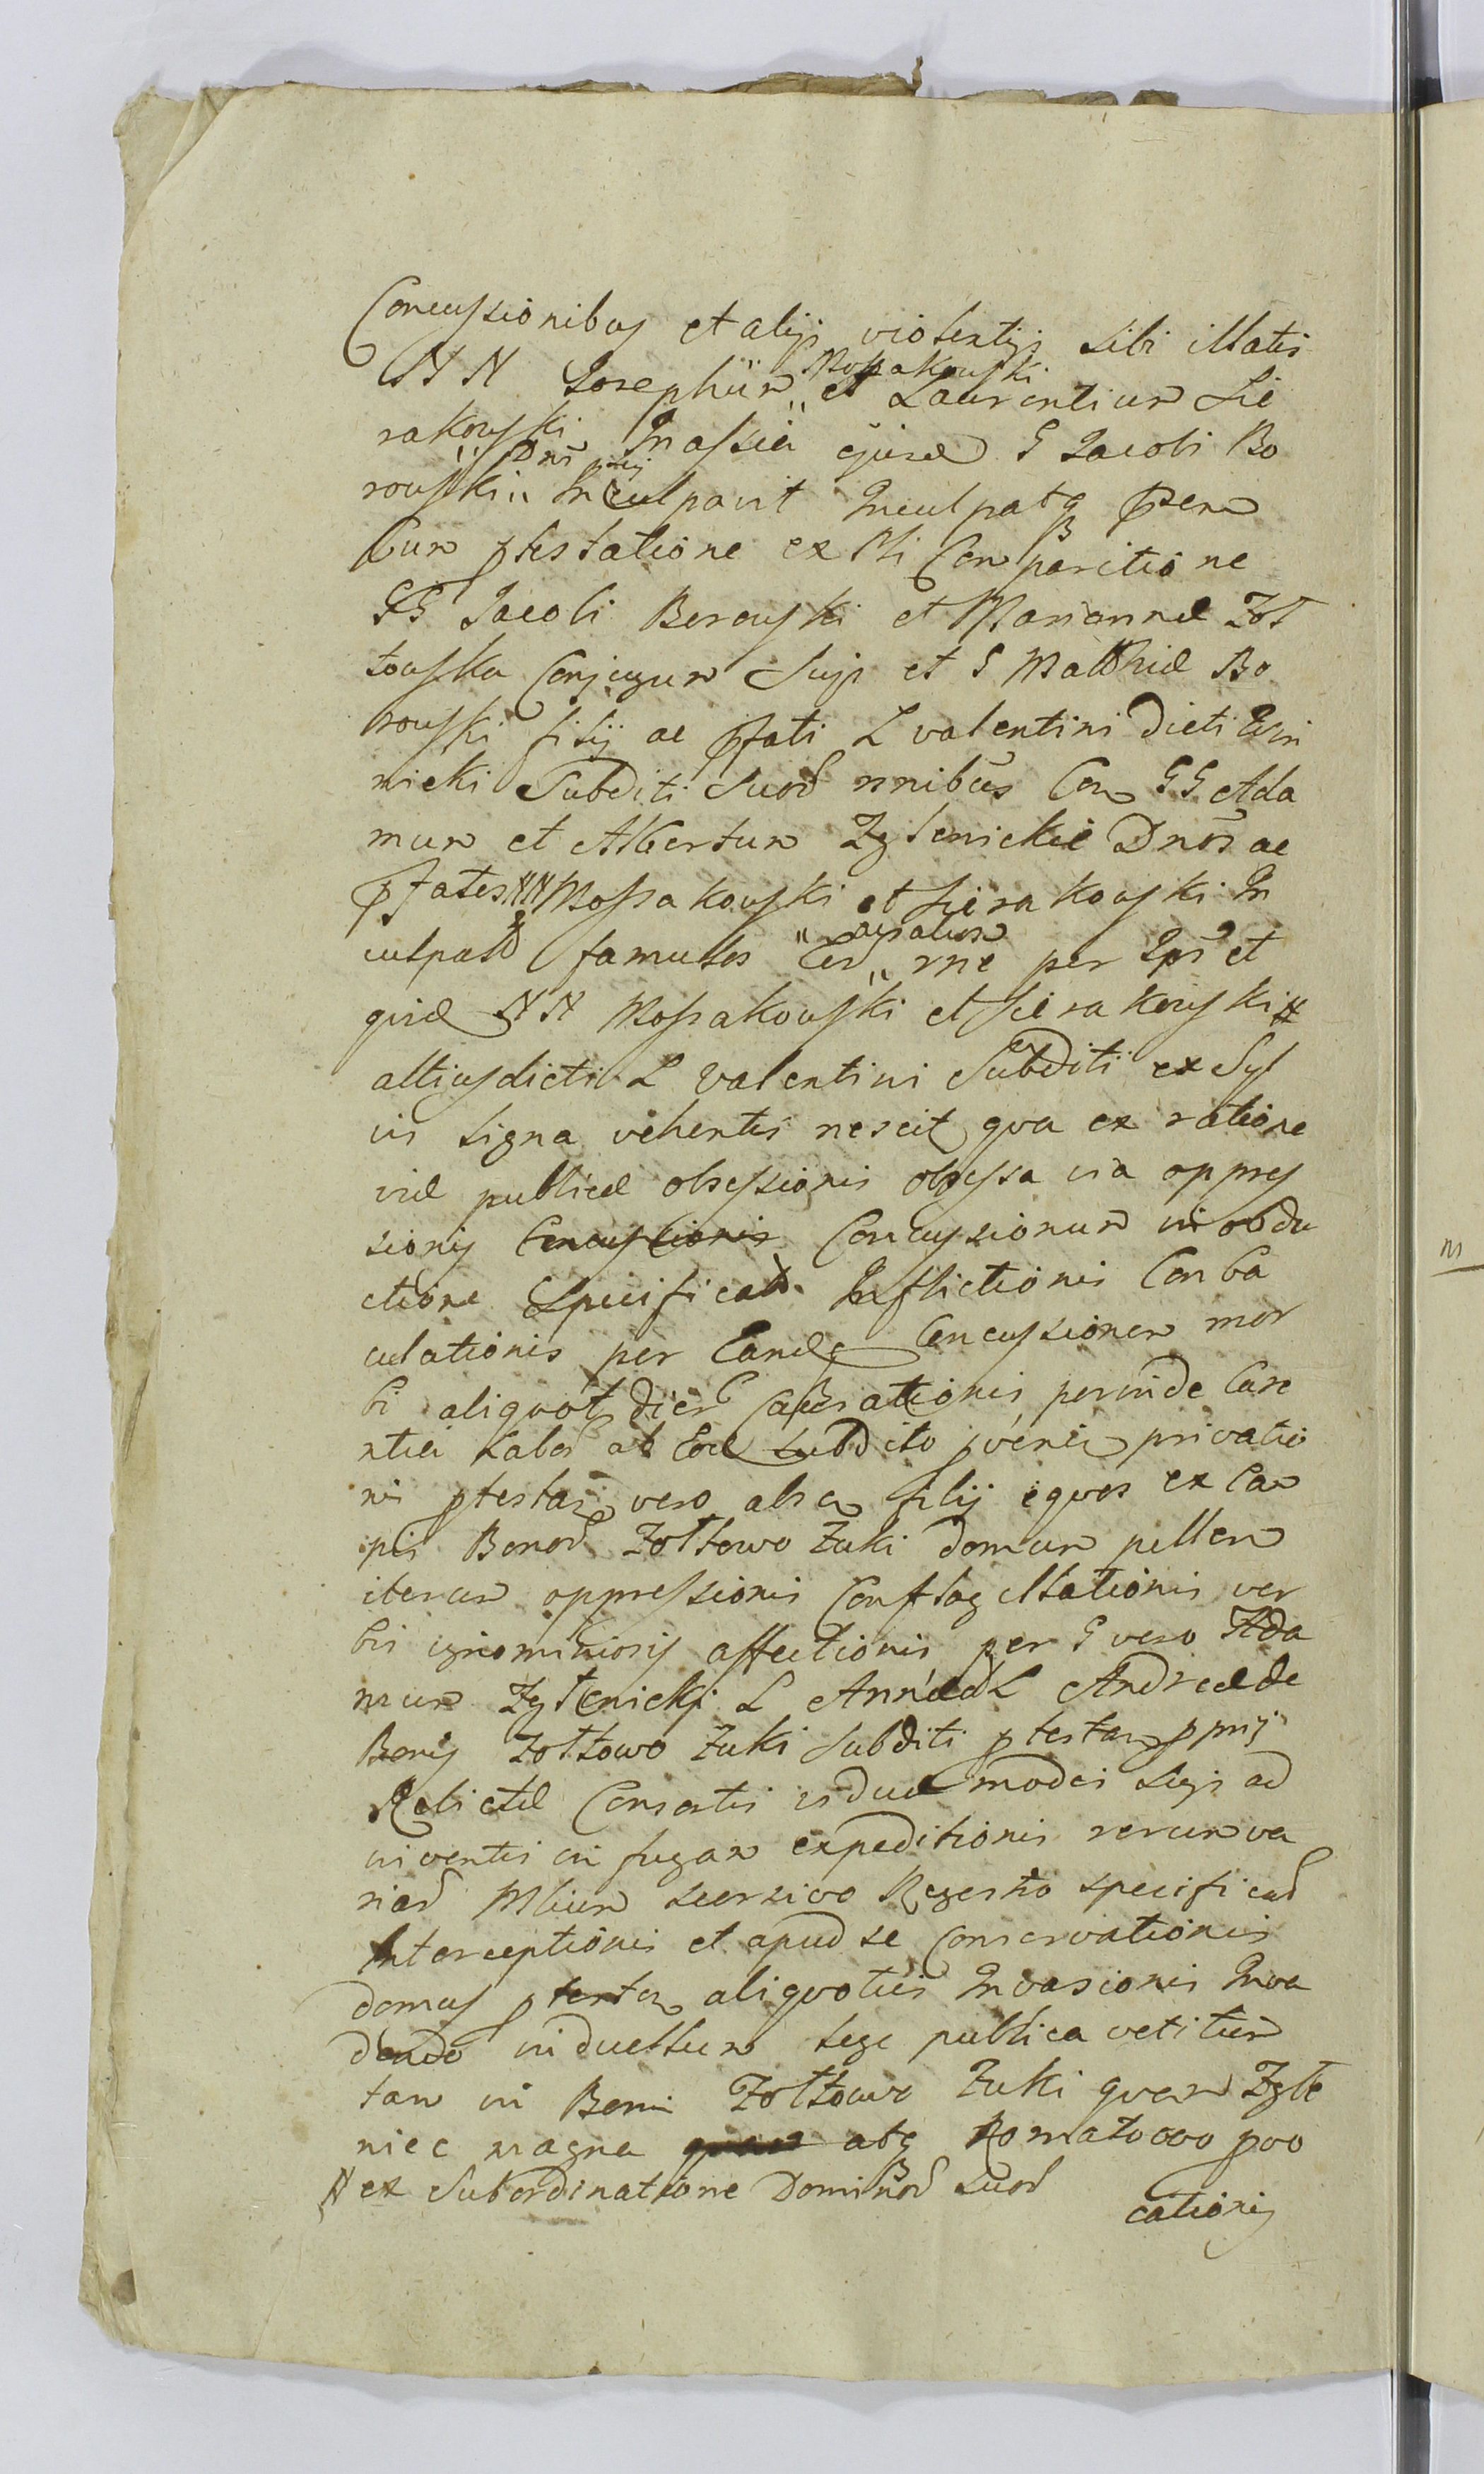 Concussionibus et alijs violentijs sibi illatis
NN Josephum „ Mossakowski „ et Laurentium Sie
rakowski Inassia ejusd G Jacobi Bo
rowski „ Dni sui „ Inculpavit Inculpatq
cum ptestatione ex Comparitione
GG Jacobi Borowski et Mariannæ Zoł
towska Conjugum Suijs et G Matthiæ Bo
rowski filij ac pfati L Valentini dicti Win
nicki Subditi Suor nnibus Con GG Ada
mum et Albertum Zglenickie Dnos ac
pfatos NN Mossakowski et Sierakowski In
culpator famulos Eor „ agnatum „ rne per Ips et
quid NN Mossakowski et Sierakowski #
altiusdicti L Valentini Subditi ex Syl
vis ligna vehentis nescit qva ex ratione
viæ publicæ obsessionis obsessa via oppres
sionis Concussionis Concussionum in obdu
ctione Specificatar Inflictionis Conba
culationis per Eandq Concussionem mor
bi aliqvot dier causationis perinde Care
ntia Labor ab Eod subdito pvenien privatio
nis ptestan vero absen filij eqvos ex Cam
pis Bonor Zołtowo Zuki domum pellen
iterum oppressionis Conflagellationis ver
bis ignominiosis affectionis per G vero Ada
mum Zglenicki L Annæ L Andreæ de
Bonis Zołtowo Zuki Subditi ptestan pprij
Relictæ Consortis viduæ modci legis ad
inventis in fugam expeditionis rerum va
riar Mlium seorsivo Regestro specificar
Interceptionis et apud se Conservationis
domus ptestan aliqvotiis Invasionis Inva
dendo in duellum lege publica vetitum
tam in Bonis Zołtowo Zuki qvam Zgle
niec magna atq Romatowo pvo
# ex Subordinatione Dominor suor
cationis